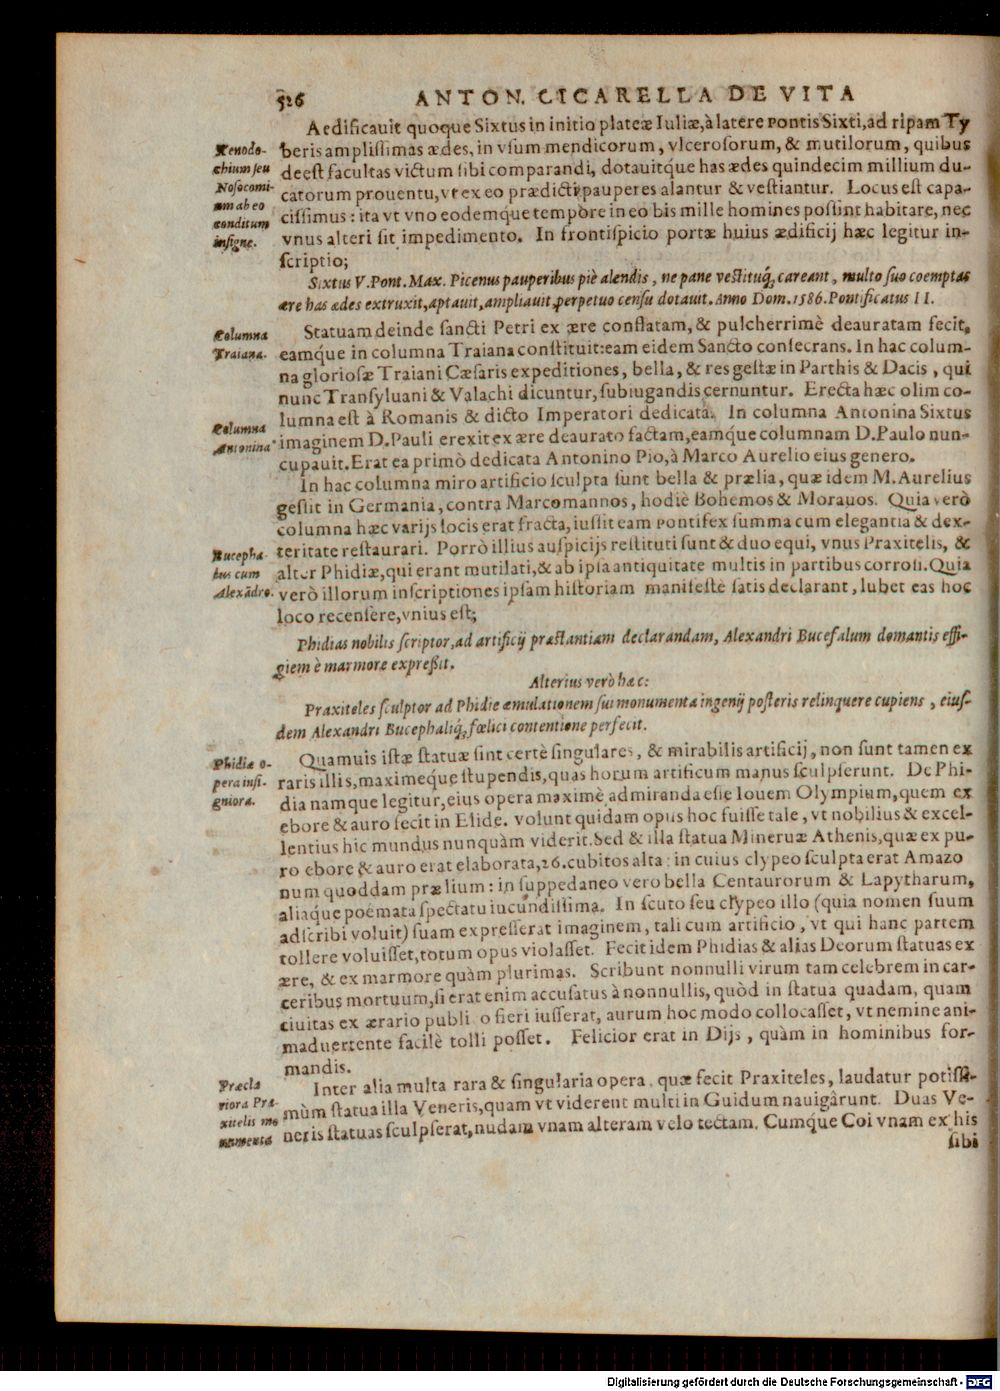 526 ANTON. CICARELLA DE VITA
Aedificauit quoque Sixtus in initio plateæ Iuliæ, à latere Pontis Sixti, ad ripam Ty
Xenodo-
chium seu
Nosocomi-
um ab eo
conditum
insigne.
beris amplissimas ædes, in vsum mendicorum, vlcerosorum, & mutilorum, quibus
deest facultas victum sibi comparandi, dotauitque has ædes quindecim millium du-
catorum prouentu, vt ex eo prædicti pauperes alantur & vestiantur. Locus est capa-
cissimus: ita vt vno eodemque tempore in eo bis mille homines possint habitare, nec
vnus alteri sit impedimento. In frontispicio portæ huius ædificij hæc legitur in-
scriptio;
Sixtus V. Pont. Max. Picenus pauperibus piè alendis, ne pane vestituq́, careant, multo suo coemptas
ære has ædes extruxit, aptauit, ampliauit, perpetuo censu dotauit. Anno Dom. 1586. Pontificatus II.
Columna
Traiana.
Statuam deinde sancti Petri ex ære conflatam, & pulcherrimè deauratam fecit,
eamque in columna Traiana constituit: eam eidem Sancto consecrans. In hac colum-
na gloriosæ Traiani Cæsaris expeditiones, bella, & res gestæ in Parthis & Dacis, qui
nunc Transyluani & Valachi dicuntur, subiugandis cernuntur. Erecta hæc olim co-
lumna est à Romanis & dicto Imperatori dedicata. In columna Antonina Sixtus
Columna
Antonina
imaginem D. Pauli erexit ex ære deaurato factam, eamque columnam D. Paulo nun-
cupauit. Erat ea primò dedicata Antonino Pio, à Marco Aurelio eius genero.
In hac columna miro artificio sculpta sunt bella & prælia, quæ idem M. Aurelius
gessit in Germania, contra Marcomannos, hodiè Bohemos & Morauos. Quia verò
columna hæc varijs locis erat fracta, iussit eam Pontifex summa cum elegantia & dex-
Bucepha-
lus cum
Alexãdro.
teritate restaurari. Porrò illius auspicijs restituti sunt & duo equi, vnus Praxitelis, &
alter Phidiæ, qui erant mutilati, & ab ipsa antiquitate multis in partibus corrosi. Quia
verò illorum inscriptiones ipsam historiam manifestè satis declarant, lubet eas hoc
loco recensere, vnius est;
Phidias nobilis scriptor, ad artificij præstantiam declarandam, Alexandri Bucefalum domantis effi-
giem è marmore expreßit.
Alterius verò hæc:
Praxiteles sculptor ad Phidiæ æmulationem sui monumenta ingenij posteris relinquere cupiens, eius-
dem Alexandri Bucephaliq́, fœlici contentione perfecit.
Phidiæ o-
pera insi-
gniora.
Quamuis istæ statuæ sint certè singulares, & mirabilis artificij, non sunt tamen ex
raris illis, maximeque stupendis, quas horum artificum manus sculpserunt. De Phi-
dia namque legitur, eius opera maximè admiranda esse Iouem Olympium, quem ex
ebore & auro fecit in Elide. volunt quidam opus hoc fuisse tale, vt nobilius & excel-
lentius hic mundus nunquàm viderit. Sed & illa statua Mineruæ Athenis, quæ ex pu-
ro ebore & auro erat elaborata, 26. cubitos alta: in cuius clypeo sculpta erat Amazo
num quoddam prælium: in suppedaneo vero bella Centaurorum & Lapytharum,
aliaque poëmata spectatu iucundissima. In scuto seu clypeo illo (quia nomen suum
adscribi voluit) suam expresserat imaginem, tali cum artificio, vt qui hanc partem
tollere voluisset, totum opus violasset. Fecit idem Phidias & alias Deorum statuas ex
ære, & ex marmore quàm plurimas. Scribunt nonnulli virum tam celebrem in car-
ceribus mortuum, si erat enim accusatus à nonnullis, quòd in statua quadam, quam
ciuitas ex ærario publi o fieri iusserat, aurum hoc modo collocasset, vt nemine ani-
maduertente facilè tolli posset. Felicior erat in Dijs, quàm in hominibus for-
mandis.
Præcla
riora Pra-
xitelis mo
numenta
Inter alia multa rara & singularia opera, quæ fecit Praxiteles, laudatur potissi-
mùm statua illa Veneris, quam vt viderent multi in Guidum nauigârunt. Duas Ve-
neris statuas sculpserat, nudam vnam alteram velo tectam. Cumque Coi vnam ex his
sibi
Digitalisierung gefördert durch die Deutsche Forschungsgemeinschaft - DFG